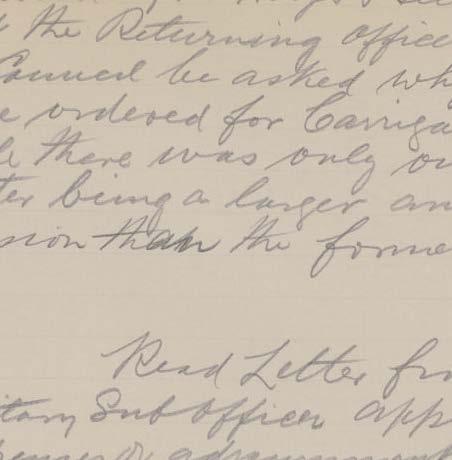 the Returning office
Council be asked why
e ordered for Carriga
le there was only on
ter being a larger an
sion than the forme
Read Letter fro
itary Sub Officer app